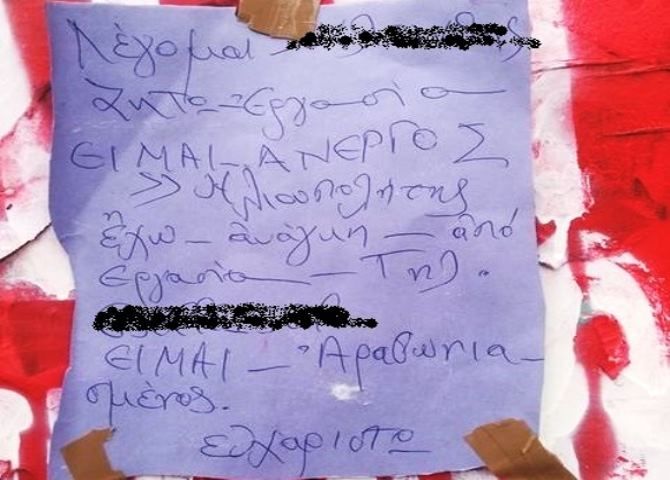 Λέγομαι
Ζητῶ Ἐργασία
ΕΙΜΑΙ - ΑΝΕΡΓΟΣ
>> Ηλιουπολητης
ἔχω - ἀνάγκη - ἀπό
Εργασία - Τηλ.
ΕΙΜΑΙ - Ἀραβωνια-
σμένος.
εὐχαριστῶ